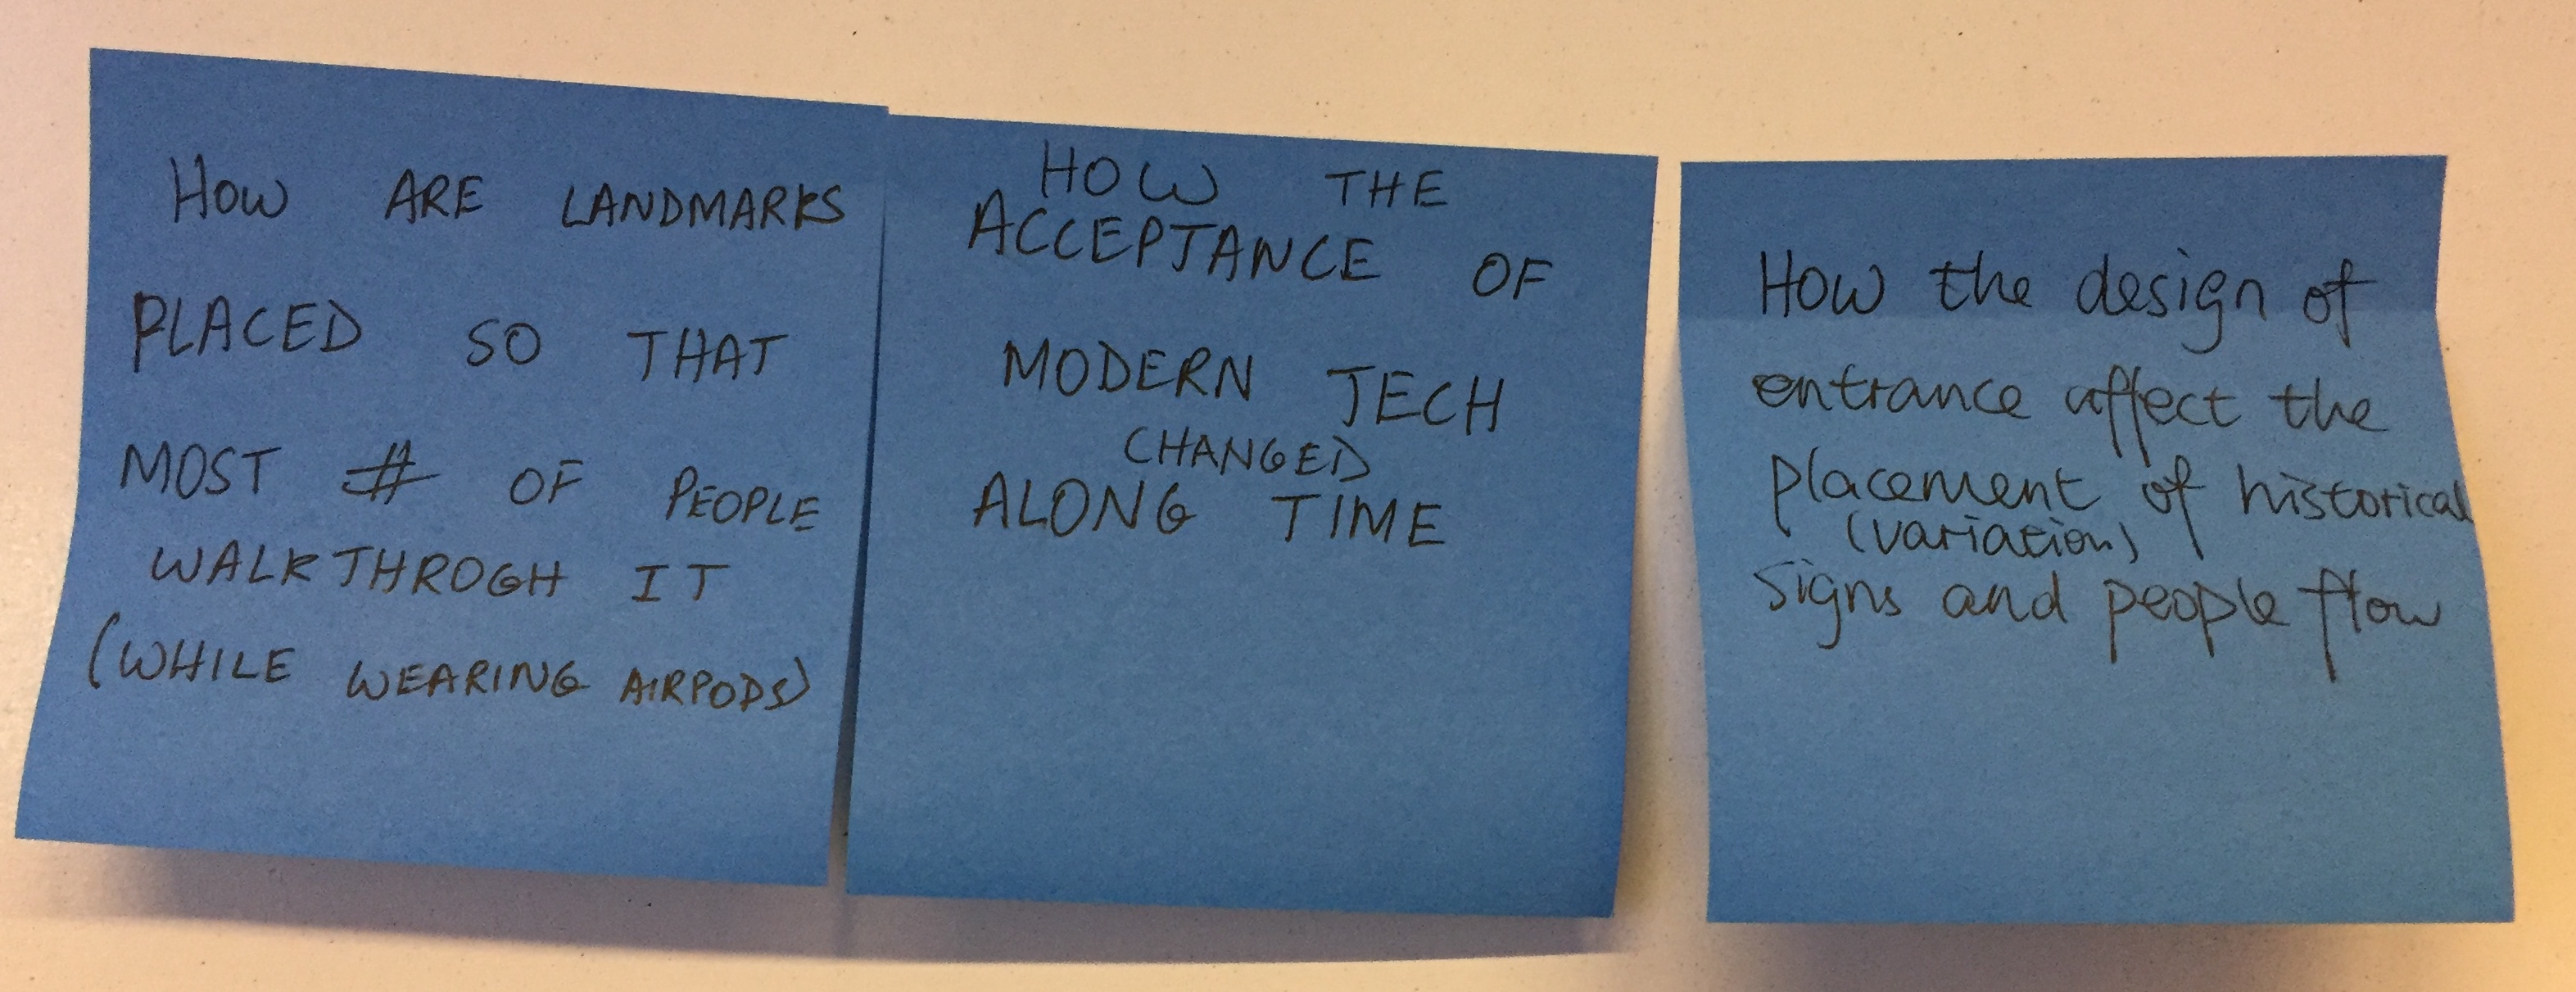 HOW ARE LANDMARKS
PLACED SO THAT
MOST # OF PEOPLE
WALKTHROGH IT
(WHILE WEARING AIRPODS)
HOW THE
ACCEPTANCE OF
MODERN TECH
CHANGED
ALONG TIME
How the design of
entrance affect the
placement of historical
(variation)
signs and people flow